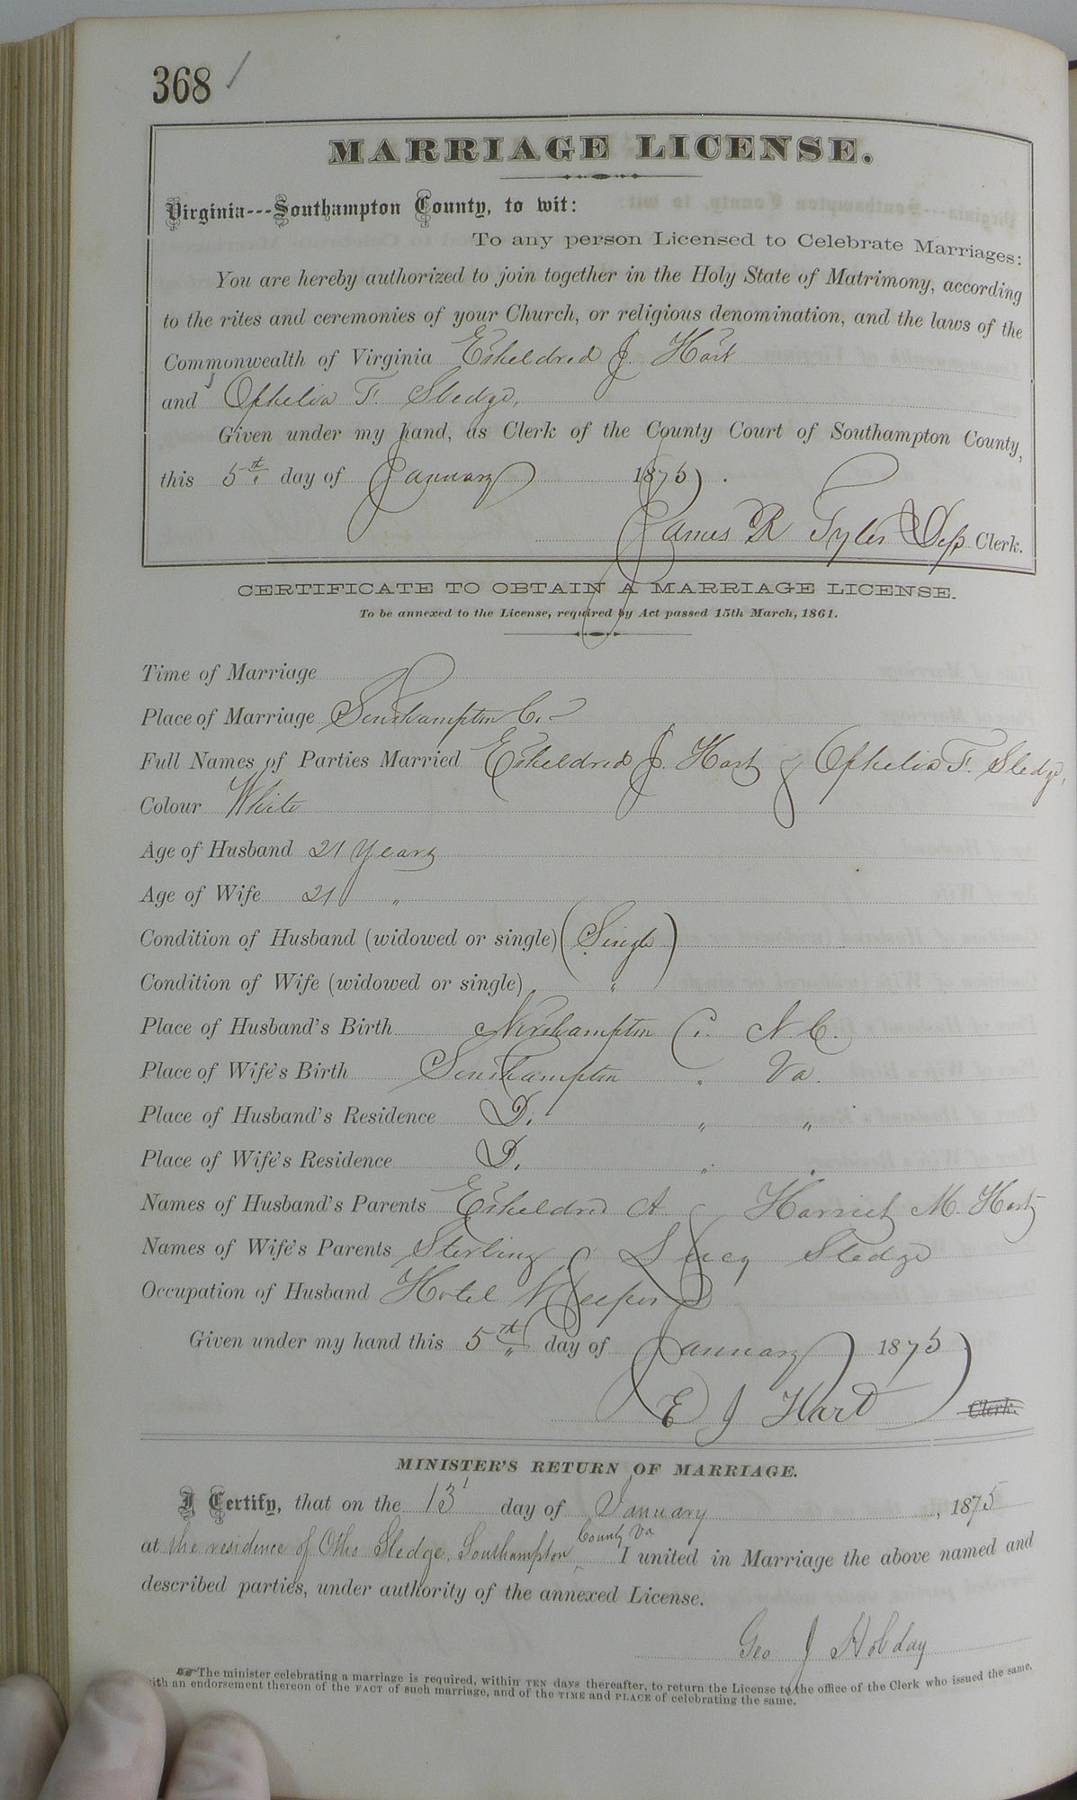 368 /
MARRIAGE LICENSE.
Virginia---Southampton County, to wit:
To any person Licensed to Celebrate Marriages:
You are hereby authorized to join together in the Holy State of Matrimony, according
to the rites and ceremonies of your Church, or religious denomination, and the laws of the
Commonwealth of Virginia Etheldred J. Hart
and Ophelia F. Sledge,
Given under my hand, as Clerk of the County Court of Southampton County,
this 5th. day of January 1875.
James R Tyler Dep Clerk.
CERTIFICATE TO OBTAIN A MARRIAGE LICENSE.
To be annexed to the License, required by Act passed 15th March, 1861.
Time of Marriage
Place of Marriage Southampton Co.
Full Names of Parties Married Etheldred J. Hart & Ophelia F. Sledge,
Colour White
Age of Husband 21 Years
Age of Wife 21 "
Condition of Husband (widowed or single) (Single)
Condition of Wife (widowed or single) "
Place of Husband's Birth Northampton Co. N.C.
Place of Wife's Birth Southampton . Va.
Place of Husband's Residence Do. " "
Place of Wife's Residence Do. " "
Names of Husband's Parents Etheldred A & Harriet M. Hart
Names of Wife's Parents Sterling & Lucy Sledge
Occupation of Husband Hotel Keeper
Given under my hand this 5th day of January 1875
E J Hart Clerk.
MINISTER'S RETURN OF MARRIAGE.
I Certify, that on the 13 day of January, 1875
at the residence of Otho Sledge, Southampton County Va I united in Marriage the above named and
described parties, under authority of the annexed License.
Geo J Hobday
The minister celebrating a marriage is required, within TEN days thereafter, to return the License to the office of the Clerk who issued the same,
with an endorsement thereon of the FACT of such marriage, and of the TIME and PLACE of celebrating the same.